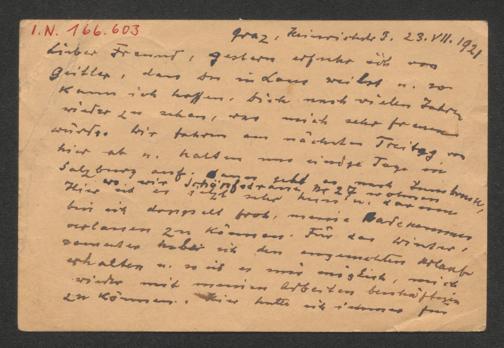 I.N. 166.603
Graz, Heinrichstr 5. 23.VII.1921
Lieber Freund, gestern erfuhr ich von
Geitler, dass Du in Lans weilst u. so
kann ich hoffen, Dich nach vielen Jahren
wieder zu sehen, was mich sehr freuen
würde. Wir fahren am nächsten Freitag von
hier ab u. halten uns einige Tage in
Salzburg auf. Dann geht es nach Innsbruck,
wo wir Schöpfstrasse Nr 27 wohnen
Hier ist es jetzt sehr heiss u. darum
bin ich doppelt froh, meine
verlassen zu können. Für das Winter-
semester habe ich den Urlaub
erhalten u. so ist es mir möglich, mich
wieder mit meinen Arbeiten beschäftigen
zu können. Hier hatte ich immer für